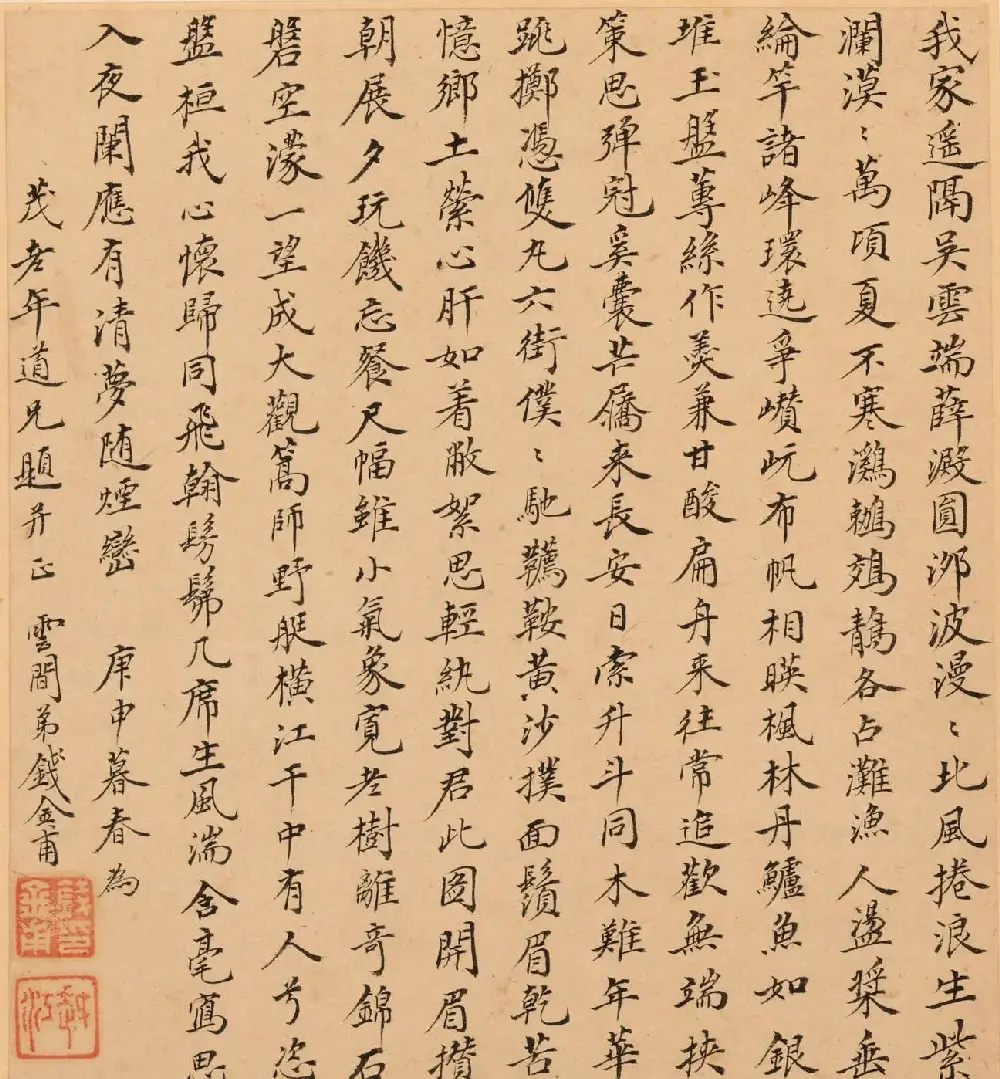 我家遥隔吴雲端薛澱圓泖波漫〻北風捲浪生紫
瀾漠〻萬頃夏不寒鸂鶒鵁鶄各占灘漁人盪槳垂
綸竿諸峰環遶爭巑岏布帆相暎楓林丹鱸魚如銀
堆玉盤蓴絲作羹兼甘酸扁舟来往常追歡無端挾
策思弹冠奚囊芒屩来長安日索升斗同木難年華
跳擲憑雙丸六街僕〻馳韉鞍黄沙撲面鬚眉乾苦
憶鄉土縈心肝如着敝絮思輕紈對君此圖開眉攢
朝展夕玩饑忘餐尺幅雖小氣象寬老樹離奇錦石
磐空濛一望成大觀篙師野艇横江干中有人兮恣
盤桓我心懷歸同飛翰髣髴几席生風湍含毫寫思
入夜闌應有清夢随煙巒 庚申暮春為
茂老年道兄題并正 雲間弟錢金甫
錢金甫印